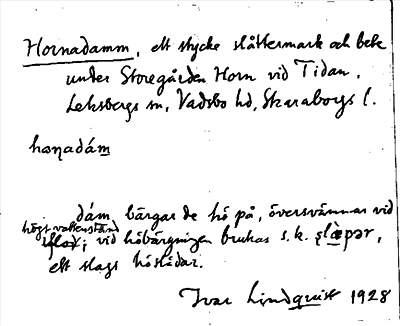 Hornadamm, ett stycke slåttermark och bete
under Storegården Horn vid Tidan,
Leksbergs sn, Vadsbo hd, Skaraborgs l.
hæṇadám
dám, bärgar de hö på, översvämmas vid
högt vattenstånd
; vid höbärgningen brukas s.k. slæpər,
ett slags höslädar.
Ivar Lindquist 1928